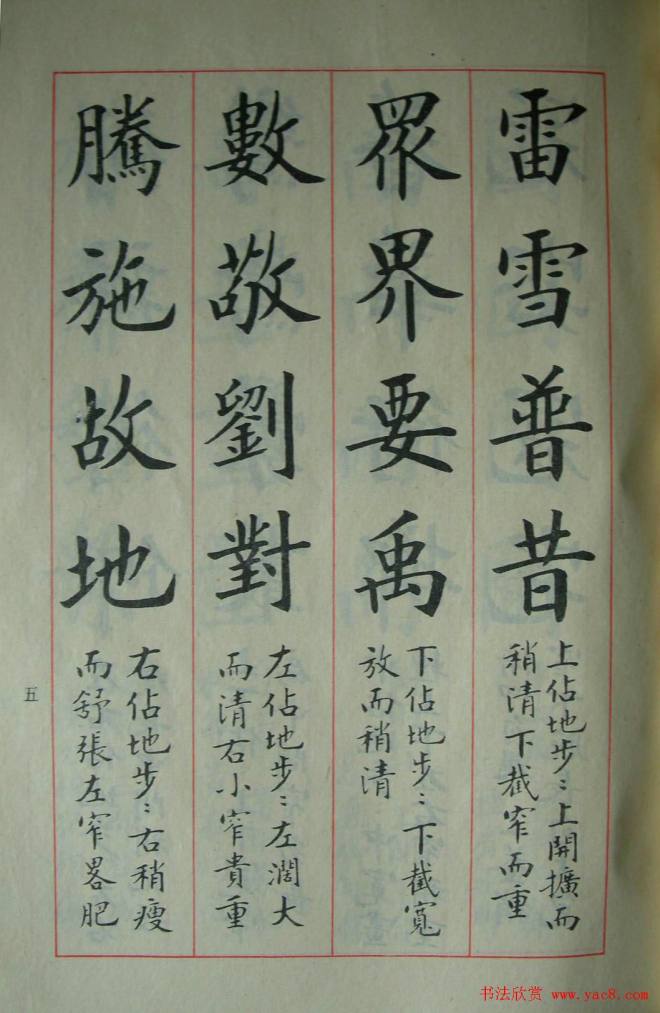 雷雪普昔
上佔地步:上開擴而
稍清下截窄而重
眾界要禹
下佔地步:下截寬
放而稍清
數敬劉對
左佔地步:左濶大
而清右小窄貴重
騰施故地
右佔地步:右稍瘦
而舒張左窄畧肥
五
书法欣赏 www.yac8.com